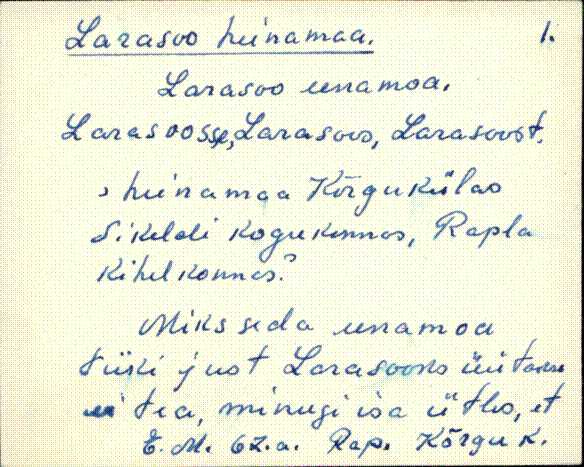 Larasoo heinamaa. 1.
Larasoo einamoa.
Larasoosse, Larasoos, Larasoost.
, heinamaa Kõrgukülas
Sikeldi kogukonnas, Rapla
kihelkonnas.
Miks seda einamoa
tüki just Larasooks üitakse
ei tea, minugi isa ütles, et
E. M. 62.a. Rap. Kõrgu k.